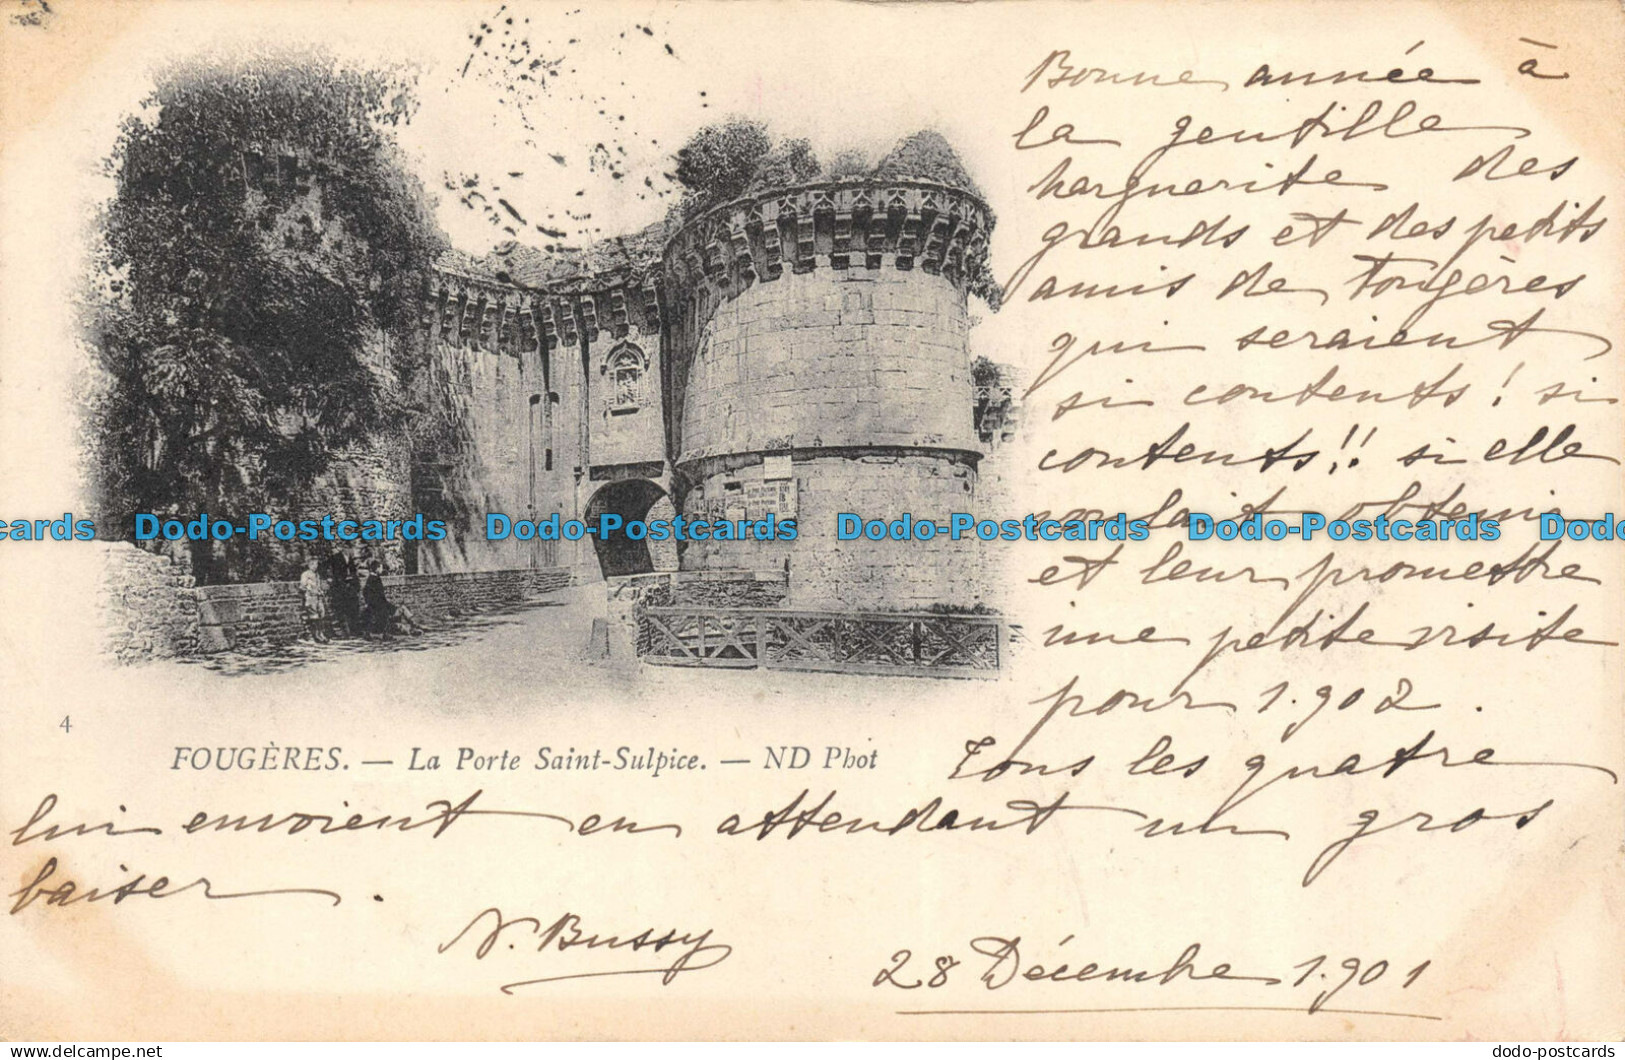 Bonne année à
la gentille
Marguerite des
grands et des petits
amis de Fougères
qui seraient
si contents ! si
contents !! si elle
voulait obtenir
et leur promettre
une petite visite
pour 1.902.
Tous les quatre
lui envoient en attendant un gros
baiser.
N. Bussy
28 Décembre 1.901
4
FOUGÈRES. — La Porte Saint-Sulpice. — ND Phot
cards Dodo-Postcards Dodo-Postcards Dodo-Postcards Dodo-Postcards Dodo
Dodo-Postcards.com
dodo-postcards.com